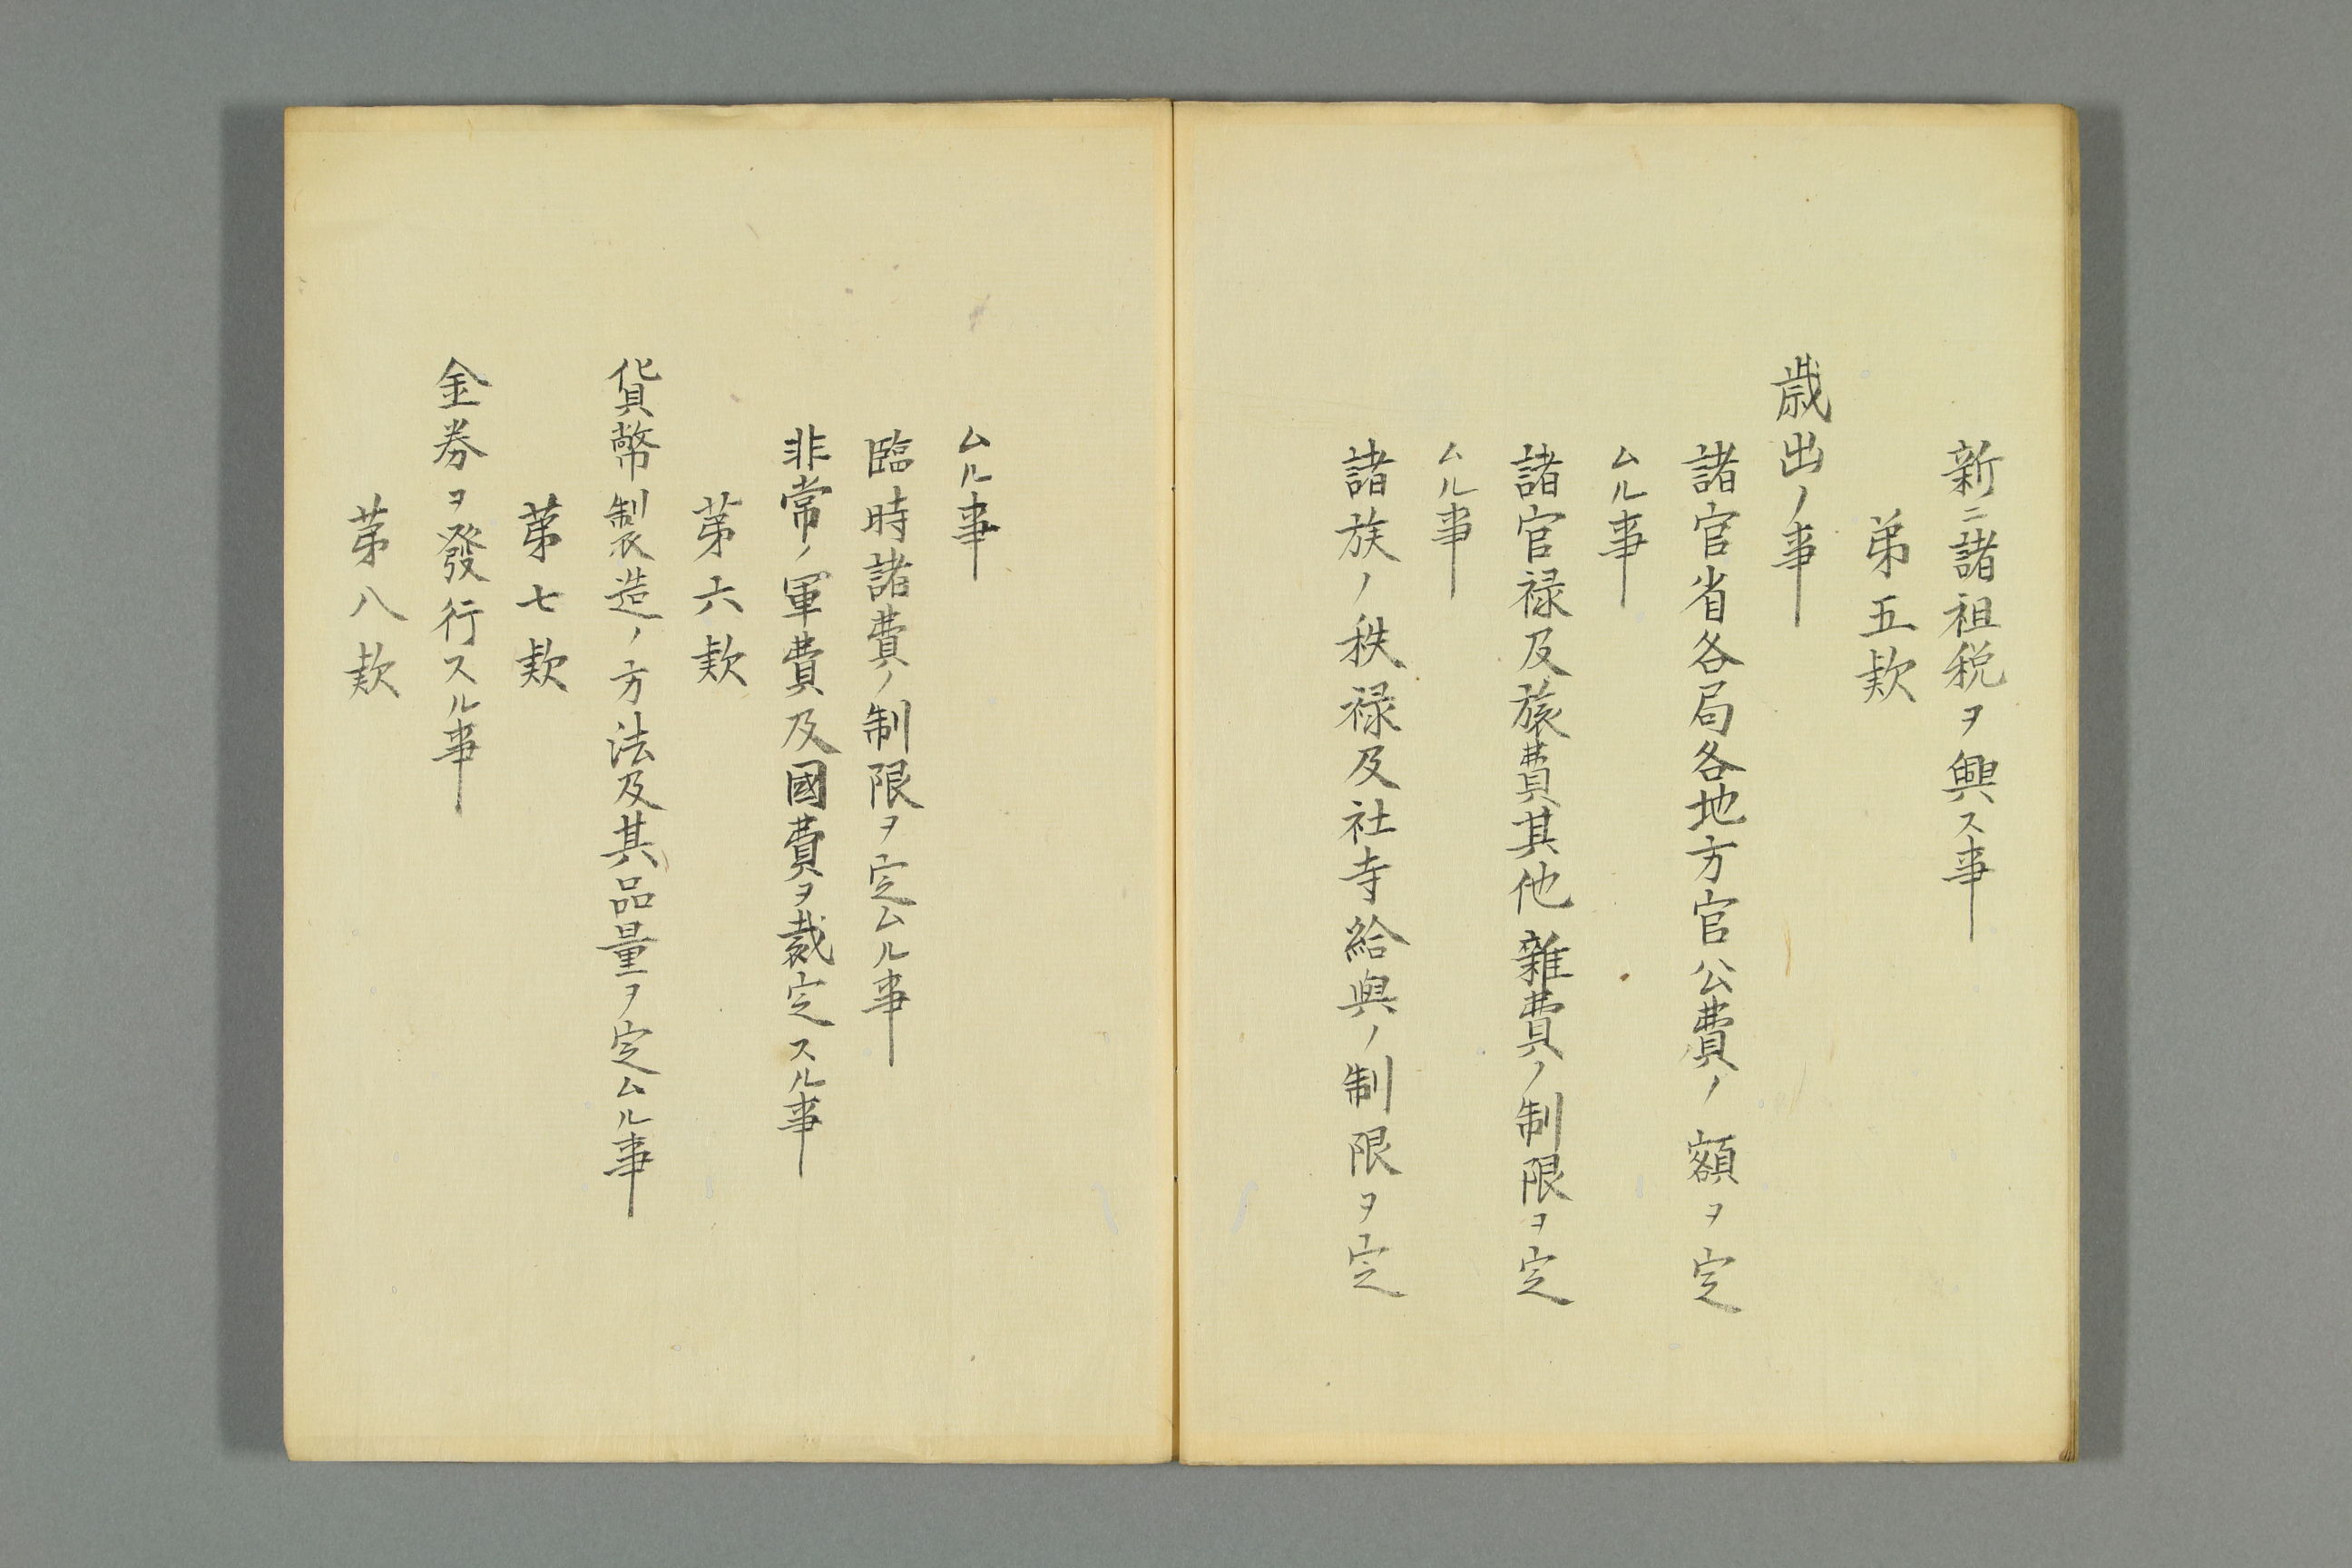 新ニ諸租税ヲ興ス事
弟五款
歳出ノ事
諸官省各局各地方官公費ノ額ヲ定
ムル事
諸官禄及旅費其他雜費ノ制限ヲ定
ムル事
諸族ノ秩禄及社寺給與ノ制限ヲ定
ムル事
臨時諸費ノ制限ヲ定ムル事
非常ノ軍費及國費ヲ裁定スル事
苐六款
貨幣製造ノ方法及其品量ヲ定ムル事
苐七款
金券ヲ發行スル事
苐八款